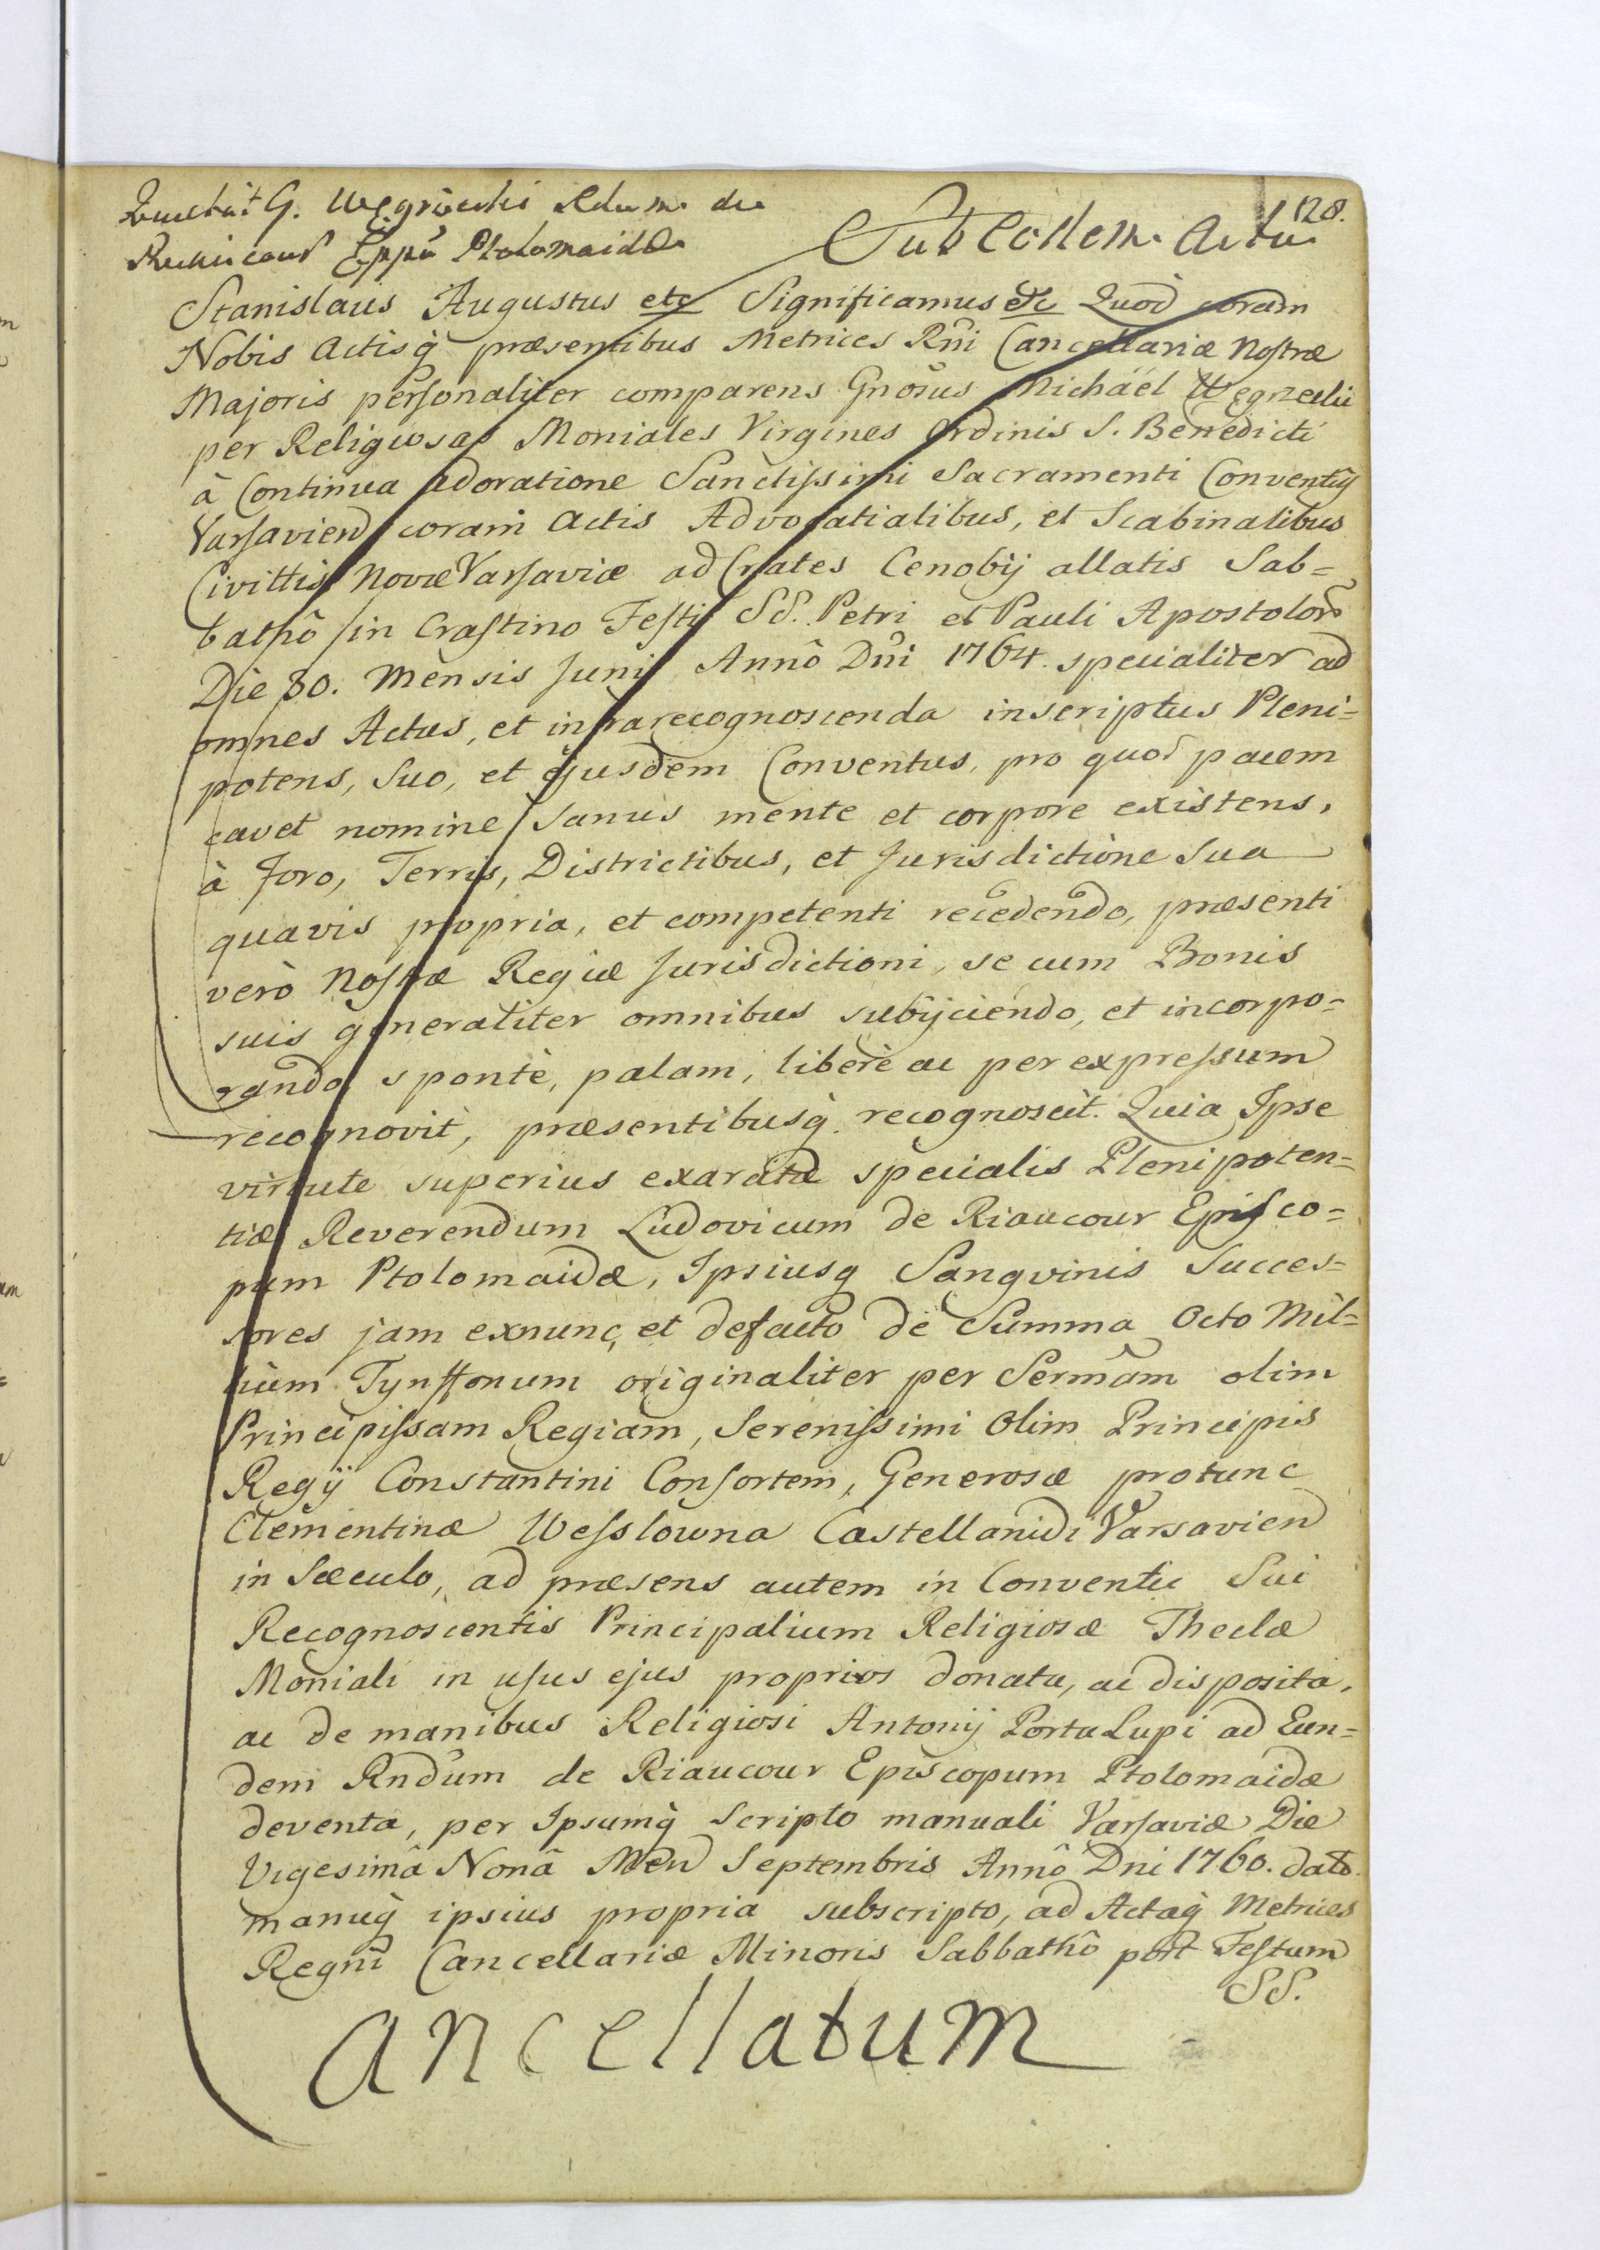 128.
Quietat G. Węgrzecki Rdum de
Riaucour Eppũ Ptolomaidæ
Sub Eodem Actu
Stanislaus Augustus etc Significamus etc Quod coram
Nobis Actisq̀ præsentibus Metrices Rñi Cancellariæ Nostræ
Majoris personaliter comparens Gñosus Michaél Węgrzecki
per Religiosas Moniales Virgines Ordinis S. Benedicti
à Continua adoratione Sanctissimi Sacramenti Conventûs
Varsavien coram Actis Advocatialibus, et Scabinalibus
Civittis Novæ Varsaviæ ad Crates Cenobij allatis Sab=
bathô in Crastino Festi SS. Petri et Pauli Apostolorũ
Die 30. Mensis Junij Annô Dñi 1764. specialiter ad
omnes Actus, et infrarecognoscenda inscriptus Pleni=
potens, suo, et ejusdem Conventus, pro quo pacem
cavet nomine sanus mente et corpore existens,
à Foro, Terris, Districtibus, et Jurisdictione sua
quavis propria, et competenti recedendo, præsenti
verò Nostræ Regiæ Jurisdictioni, se cum Bonis
suis generaliter omnibus subijciendo, et incorpo=
rando, spontè, palam, liberè ac per expressum
recognovit, præsentibusq̀ recognoscit. Quia Ipse
virtute superius exaratæ specialis Plenipoten=
tiæ Reverendum Ludovicum de Riaucour Episco=
pum Ptolomaidæ, Ipsiusq Sangvinis Succes=
sores jam exnunc, et defacto de Summa Octo Mil=
lium Tynffonum originaliter per Sermãm olim
Principissam Regiam, Serenissimi Olim Principis
Regij Constantini Consortem, Generosæ protunc
Clementinæ Wesslowna Castellanidi Varsavien
in Sæculo, ad præsens autem in Conventu Sui
Recognoscentis Principalium Religiosæ Theclæ
Moniali in usus ejus proprios donata, ac disposita,
ac de manibus Religiosi Antonij Porta Lupi ad Eun=
dem Rndũm de Riaucour Episcopum Ptolomaidæ
deventa, per Ipsumq̀ Scripto manuali Varsaviæ Die
Vigesimâ Nonâ Men Septembris Annô Dni 1760. dato
manuq̀ ipsius propria subscripto, ad Actaq̀ Metrices
Regni Cancellariæ Minoris Sabbathô post Festum
SS.
Cancellatum